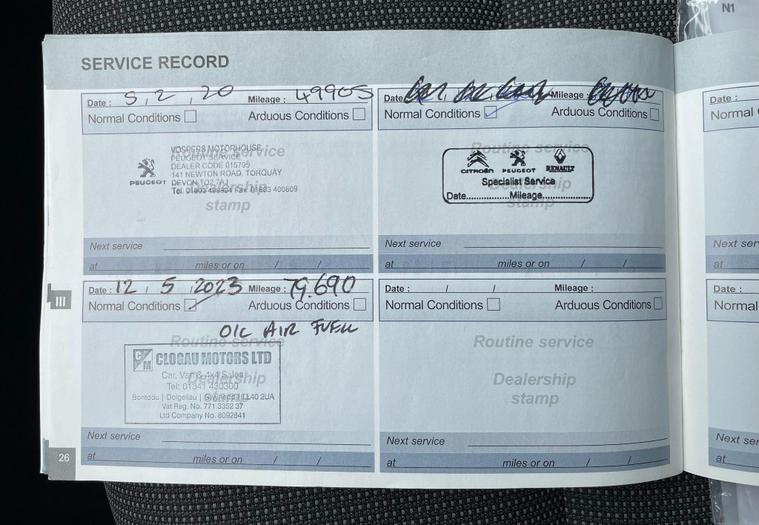 N1
SERVICE RECORD
Date : 5, 2, 20 Mileage : 49905
Normal Conditions Arduous Conditions
Routine service
VOSPERS MOTORHOUSE
PEUGEOT SERVICE
DEALER CODE 015795
141 NEWTON ROAD, TORQUAY
DEVON TQ2 7AJ
PEUGEOT
Dealership
stamp
Next service
at miles or on / /
Date Mileage :
Normal Conditions Arduous Conditions
Routine service
CITROËN PEUGEOT RENAULT
Specialist Service
Date Mileage
Dealership
stamp
Next service
at miles or on / /
Date : 12, 5, 2023 Mileage : 79.690
Normal Conditions Arduous Conditions
OIL AIR FUEL
Routine service
C M CLOGAU MOTORS LTD
Car, Van & 4x4 Sales
Tel: 01341 430300
Bontddu | Dolgellau | Gwynedd LL40 2UA
Vat Reg. No. 771 3352 37
Ltd Company No. 8092841
Dealership
stamp
Next service
at miles or on / /
Date : / / Mileage :
Normal Conditions Arduous Conditions
Routine service
Dealership
stamp
Next service
at miles or on / /
III
26
Date :
Normal
Next ser
at
Date :
Normal
Next ser
at